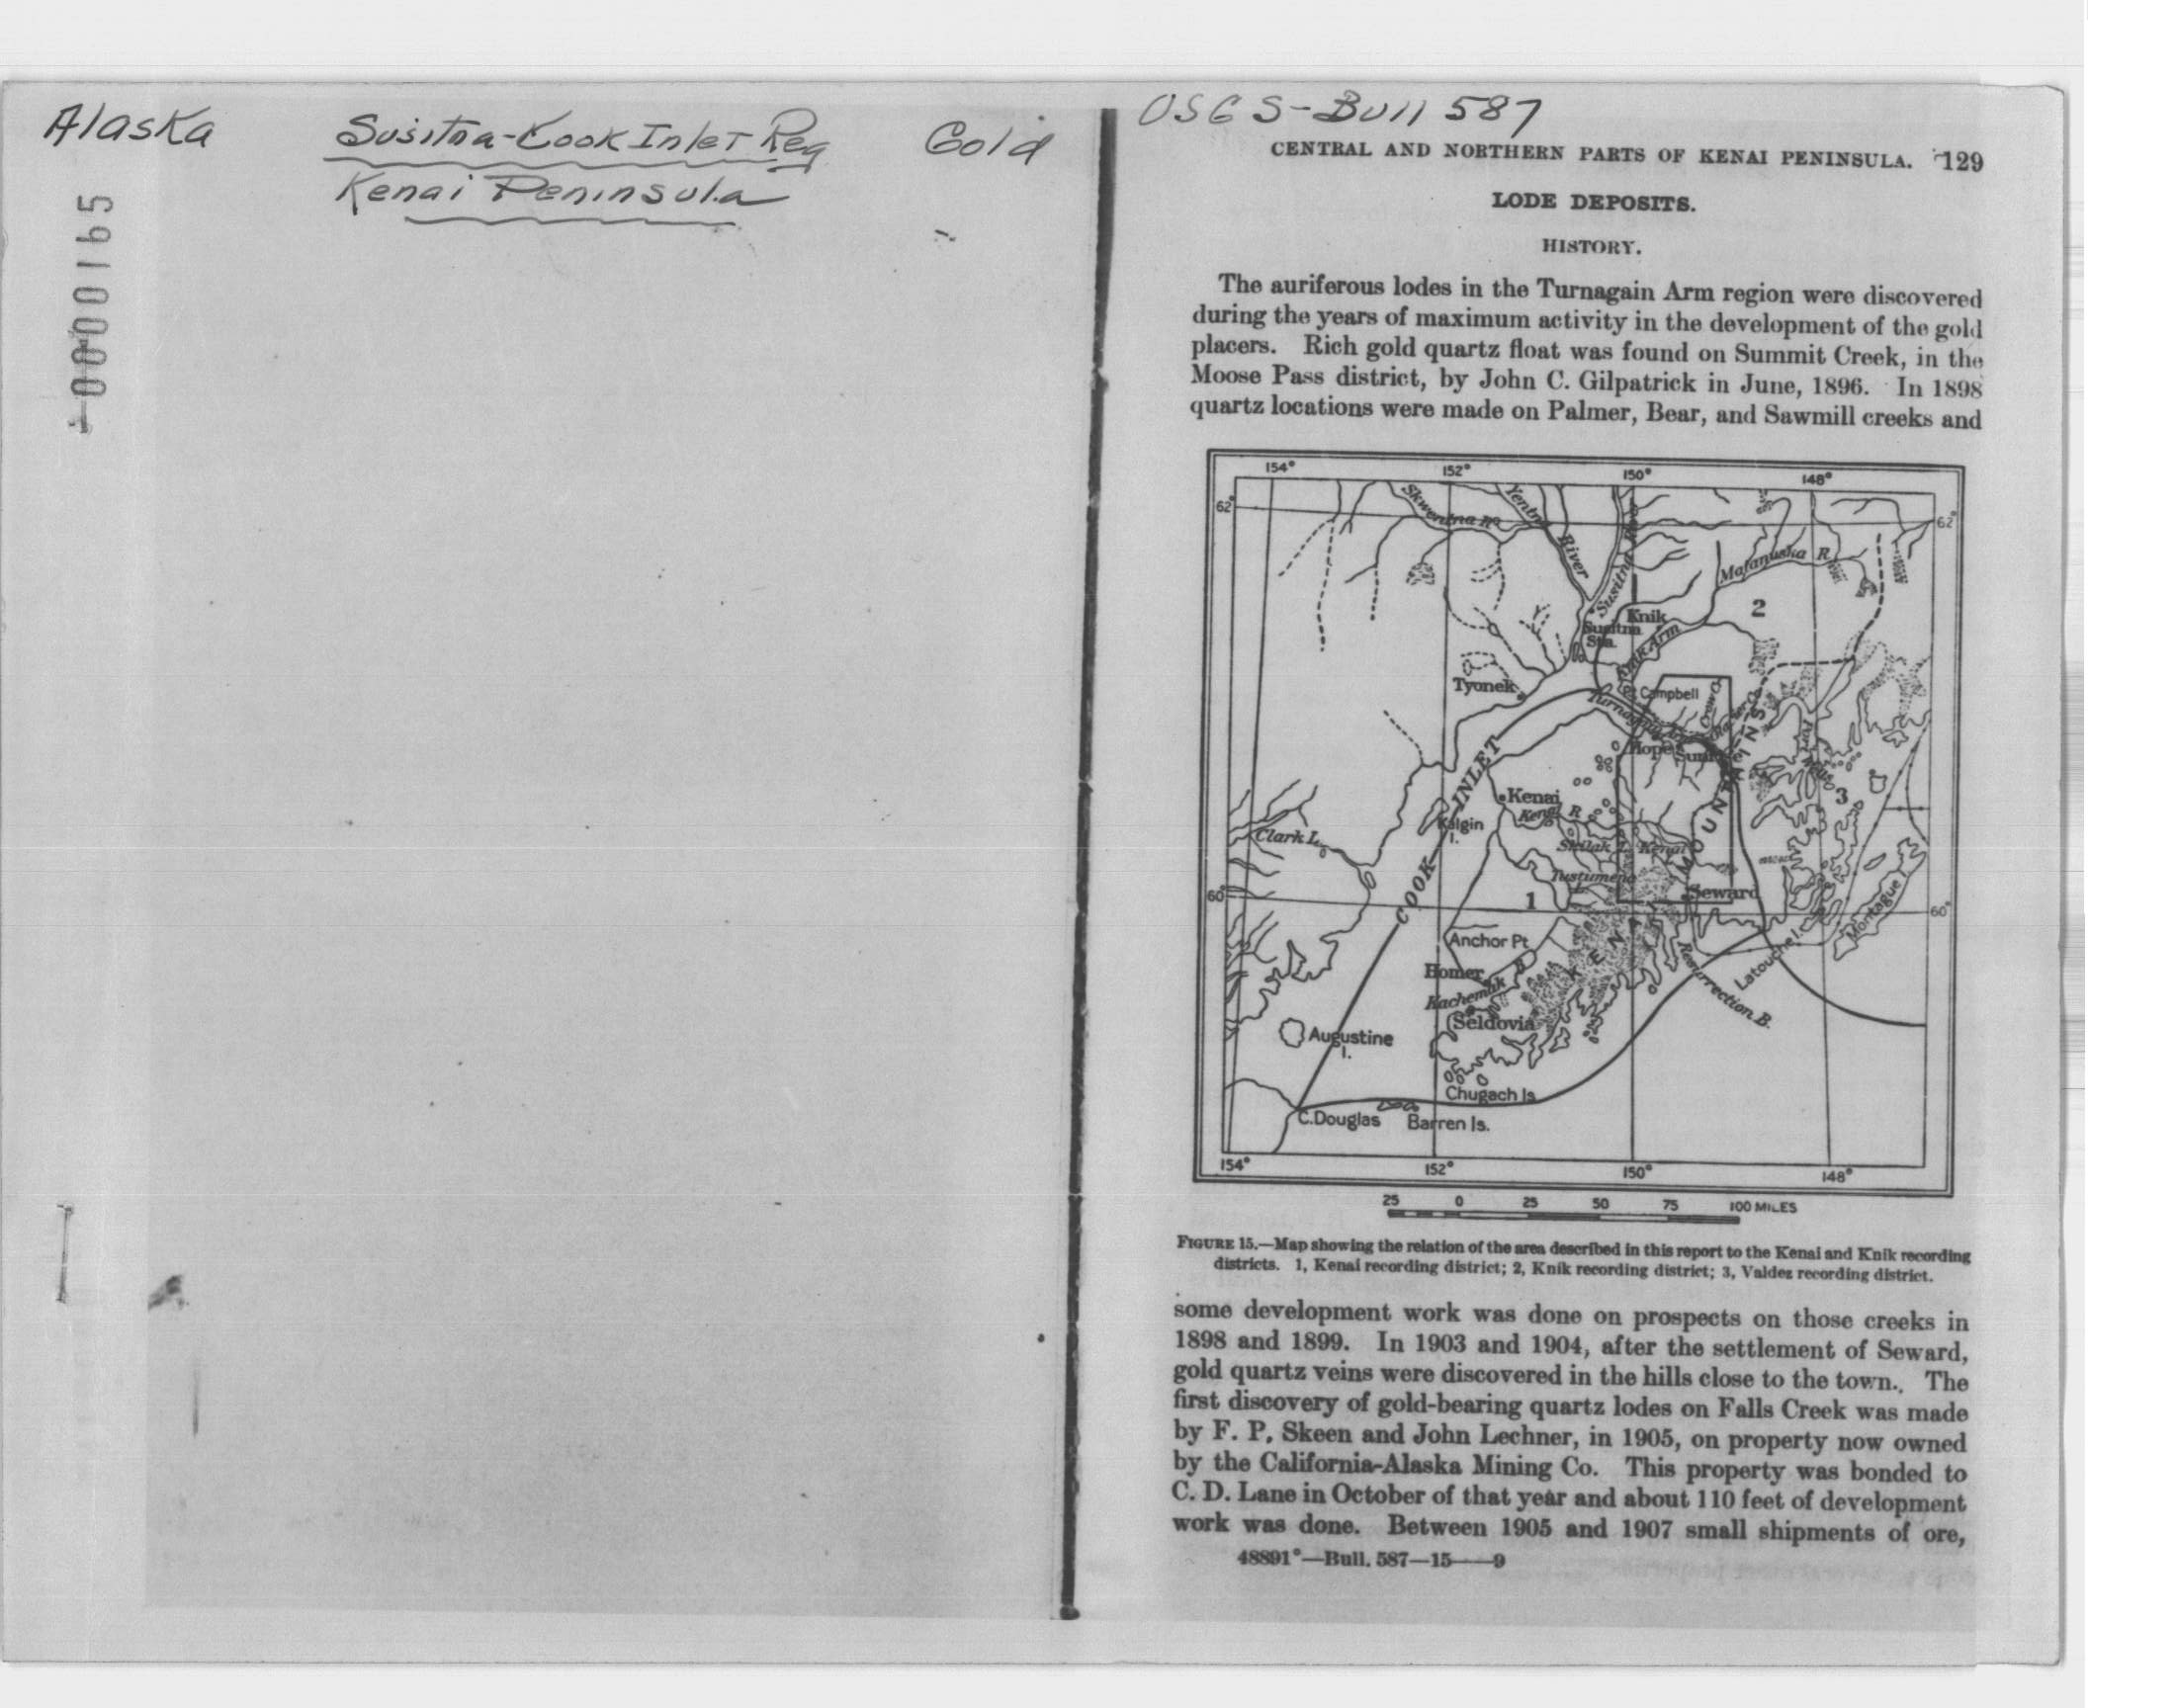 Alaska
Susitna-Cook Inlet Reg
Kenai Peninsula
Gold
0000165
USGS-Bull 587
CENTRAL AND NORTHERN PARTS OF KENAI PENINSULA. 129
LODE DEPOSITS.
HISTORY.
The auriferous lodes in the Turnagain Arm region were discovered
during the years of maximum activity in the development of the gold
placers. Rich gold quartz float was found on Summit Creek, in the
Moose Pass district, by John C. Gilpatrick in June, 1896. In 1898
quartz locations were made on Palmer, Bear, and Sawmill creeks and
154° 152° 150° 148°
62° 62°
Skwentna R.
Yentna River
Susitna River
Matanuska R.
2
Knik
Susitna Sta.
Knik Arm
Tyonek
Pt. Campbell
Crow Cr
Turnagain Arm
Hope
Sunrise
Port Wells
3
COOK INLET
Kenai
Kenai R.
Kalgin I.
Clark L.
Skilak L.
Kenai L.
Tustumena L.
KENAI MOUNTAINS
Seward
60° 60°
1
Montague I.
Anchor Pt
Latouche I.
Homer
Kachemak B.
Resurrection B.
Seldovia
Augustine I.
Chugach Is.
C. Douglas
Barren Is.
154° 152° 150° 148°
25 0 25 50 75 100 MILES
FIGURE 15.—Map showing the relation of the area described in this report to the Kenai and Knik recording
districts. 1, Kenai recording district; 2, Knik recording district; 3, Valdez recording district.
some development work was done on prospects on those creeks in
1898 and 1899. In 1903 and 1904, after the settlement of Seward,
gold quartz veins were discovered in the hills close to the town. The
first discovery of gold-bearing quartz lodes on Falls Creek was made
by F. P. Skeen and John Lechner, in 1905, on property now owned
by the California-Alaska Mining Co. This property was bonded to
C. D. Lane in October of that year and about 110 feet of development
work was done. Between 1905 and 1907 small shipments of ore,
48891°—Bull. 587—15——9